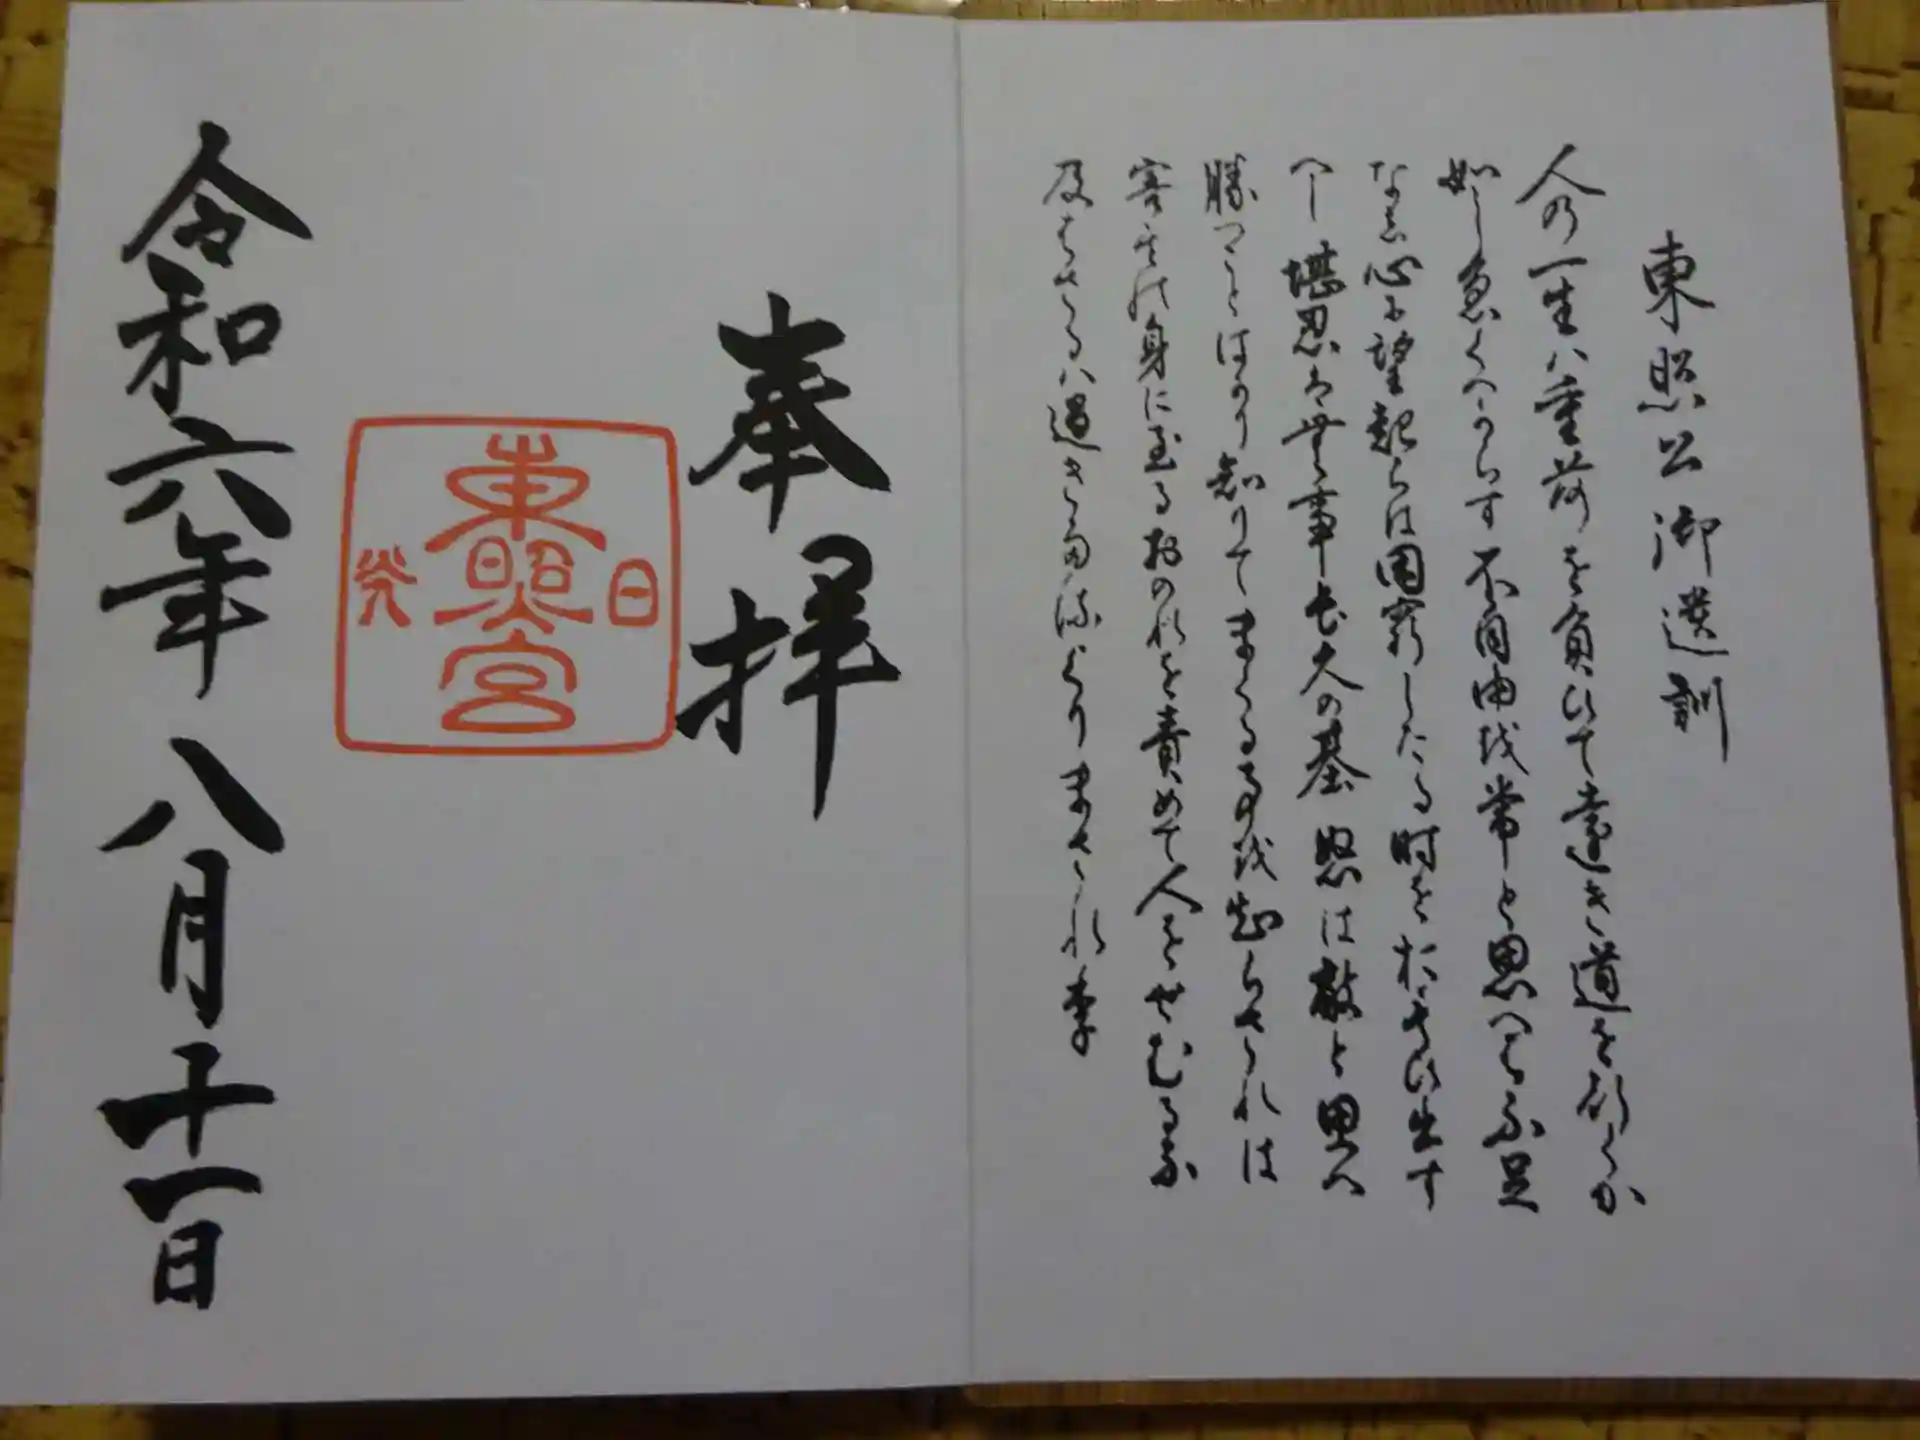 東照公御遺訓
人の一生ハ重荷を負ひて遠き道を行くか
如し急くへからす不自由を常と思へは不足
なし心に望起らは困窮したる時を思ひ出す
へし堪忍は無事長久の基怒は敵と思へ
勝つことはかり知りてまくる事を知らされは
害其の身に至るおのれを責めて人をせむるな
及はさるハ過きたるよりまされり
奉拝
日光
東照宮
令和六年八月十一日